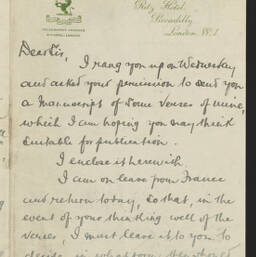 Ritz Hotel,
Piccadilly
London. W.1
Dear Sir,
I rang you up on Wednesday
and asked your permission to send you
a Manuscript of some verses of mine,
which I am hoping you may think
suitable for publication.
I enclose it herewith.
I am on leave from France
and return today, so that, in the
event of your thinking well of the
verses, I must leave it to you to
decide in what form they should